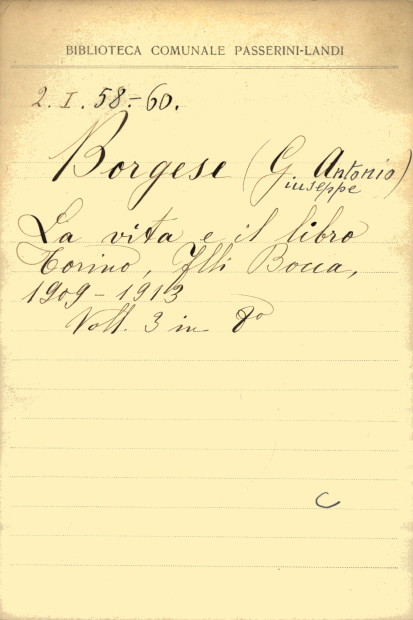 BIBLIOTECA COMUNALE PASSERINI-LANDI
2. I. 58.-60.
Borgese (G. Antonio)
iuseppe
La vita e il libro
Torino, Flli Bocca,
1909-1913
Voll. 3 in 8º
C